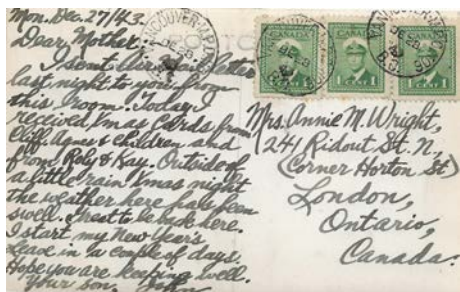 Mon. Dec. 27/43.
Dear Mother:
I sent Airmail letter
last night to you from
this room. Today I
received Xmas Cards from
Cliff, Agnes & Children and
from Roly & Kay. Outside of
a little rain Xmas night
the weather here has been
swell. Great to be back here.
I start my New Year's
Leave in a couple of days.
Hope you are keeping well.
Your son, John
POSTC
VANCOUVER
DE 28
B.C.
CANADA
CANADA
CANADA
1 CENT 1
1 CENT 1
1 CENT 1
Mrs. Annie M. Wright,
241 Ridout St. N.,
(Corner Horton St.)
London,
Ontario,
Canada.